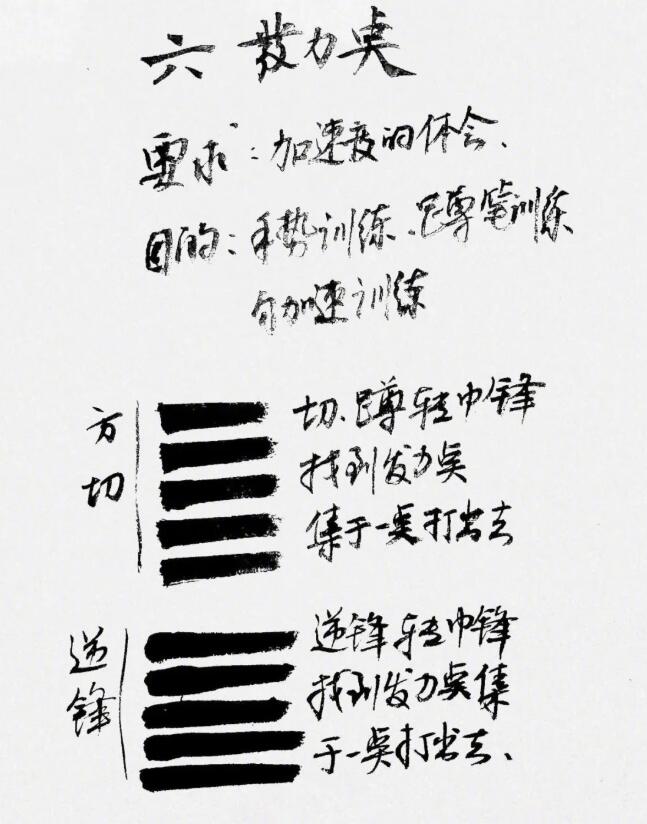 六 發力奌
要求：加速度的体会、
目的：手势训练、蹲笔训练
勻加速训练
方切
切、蹲转中锋
找到发力奌
集于一奌打出去
逆锋
逆锋转中锋
找到发力奌集
于一奌打出去、